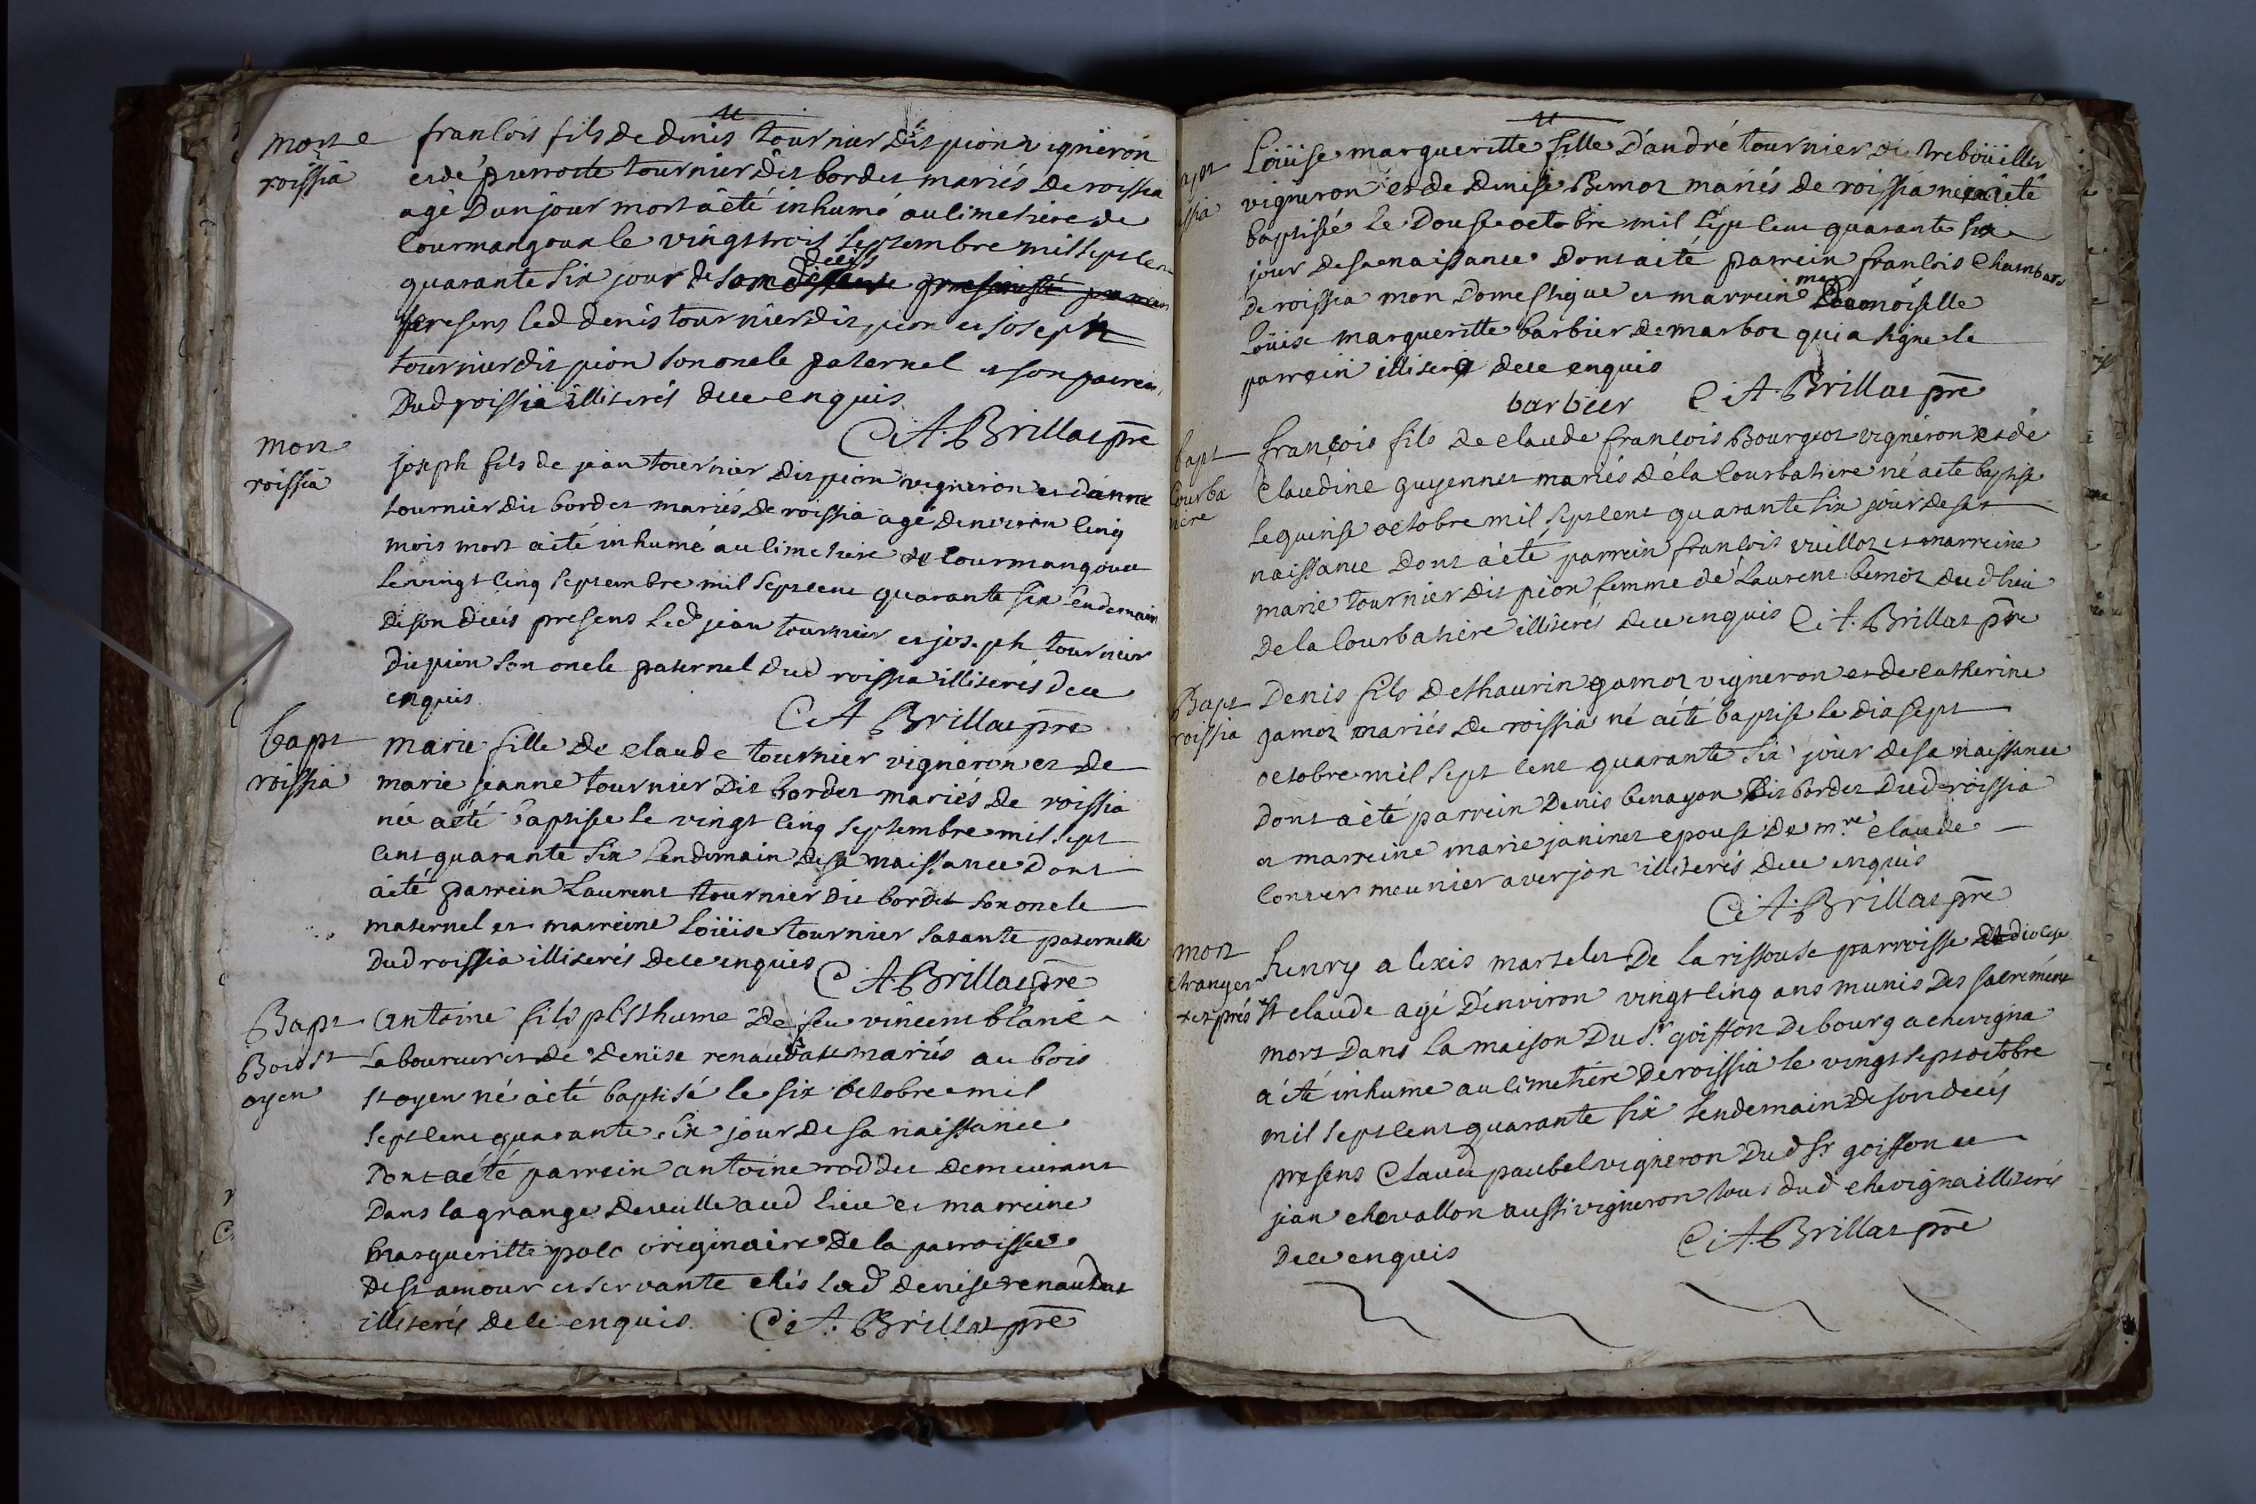 mort
roissia
francois fils de denis tournier dit pion vigneron
et de pierrotte tournier dit bordet mariés de roissia
agé d'un jour mort a été inhumé au cimetiere de
courmangoux le vingt trois septembre mil sept cent
quarante six jour de son décés
presens led denis tournier dit pion et joseph
tournier dit pion son oncle paternel et son parrein
dud roissia illiterés de ce enquis
C A Brillat pre
mort
roissia
joseph fils de jean tournier dit pion vigneron et d'anne
tournier dit bordet mariés de roissia agé d'environ cinq
mois mort a été inhumé au cimetiere de courmangoux
le vingt cinq septembre mil sept cent quarante six lendemain
de son decés presens led jean tournier et joseph tournier
dit pion son oncle paternel dud roissia illiterés de ce
enquis
C A Brillat pre
bapt
roissia
marie fille de claude tournier vigneron et de
marie jeanne tournier dit bordet mariés de roissia
née a été baptisée le vingt cinq septembre mil sept
cent quarante six lendemain de sa naissance dont
a été parrein laurent tournier dit bordet son oncle
maternel et marreine loüise tournier sa tante paternelle
dud roissia illiterés de ce enquis
C A Brillat pre
Bapt
Bois st
oyen
antoine fils posthume de feu vincent blanc
laboureur et de denise renaudat mariés au bois
st oyen né a été baptisé le six octobre mil
sept cent quarante six jour de sa naissance
dont a été parrein antoine roddet demeurant
dans la grange deveille aud lieu et marreine
margueritte polo originaire de la parroisse
de st amour et servante chés lad denise renaudat
illiterés de ce enquis C A Brillat pre
bapt
roissia
Loüise margueritte fille d'andré tournier dit treböüillet
vigneron et de denise Bernoz mariés de roissia née a été
baptisée le douse octobre mil sept cent quarante six
jour de sa naissance dont a été parrein francois chambard
de roissia mon domestique et marreine demoiselle
loüise margueritte barbier de marboz qui a signé le
parrein illiteré de ce enquis
barbier C A Brillat pre
bapt
Courba
tiere
françois fils de claude francois Bourgeot vigneron et de
claudine guyennet mariés de la Courbatiere né a été baptisé
le quinse octobre mil sept cent quarante six jour de sa
naissance dont a été parrein francois vuilloz et marreine
marie tournier dit pion femme de laurent bernoz dud lieu
de la Courbatiere illiterés de ce enquis C A Brillat pre
Bapt
roissia
Denis fils de thaurin gamoz vigneron et de catherine
gamoz mariés de roissia né a été baptisé le dix sept
octobre mil sept cent quarante six jour de sa naissance
dont a été parrein denis benayon dit bordet dud roissia
et marreine marie janinet epouse de m.re claude
convert meunier a verjon illiterés de ce enquis
C A Brillat pre
mort
etranger
henry alexis martelet de la rissouse parroisse et diocese
st claude agé d'environ vingt cinq ans munis des sacremens
mort dans la maison du sr goiffon de bourg a chevigna
a été inhumé au cimetiere de roissia le vingt sept octobre
mil sept cent quarante six lendemain de son decés
presens claude paubel vigneron dud sr goiffon et
jean chevallon aussi vigneron tous dud chevigna illiterés
de ce enquis C A Brillat pre